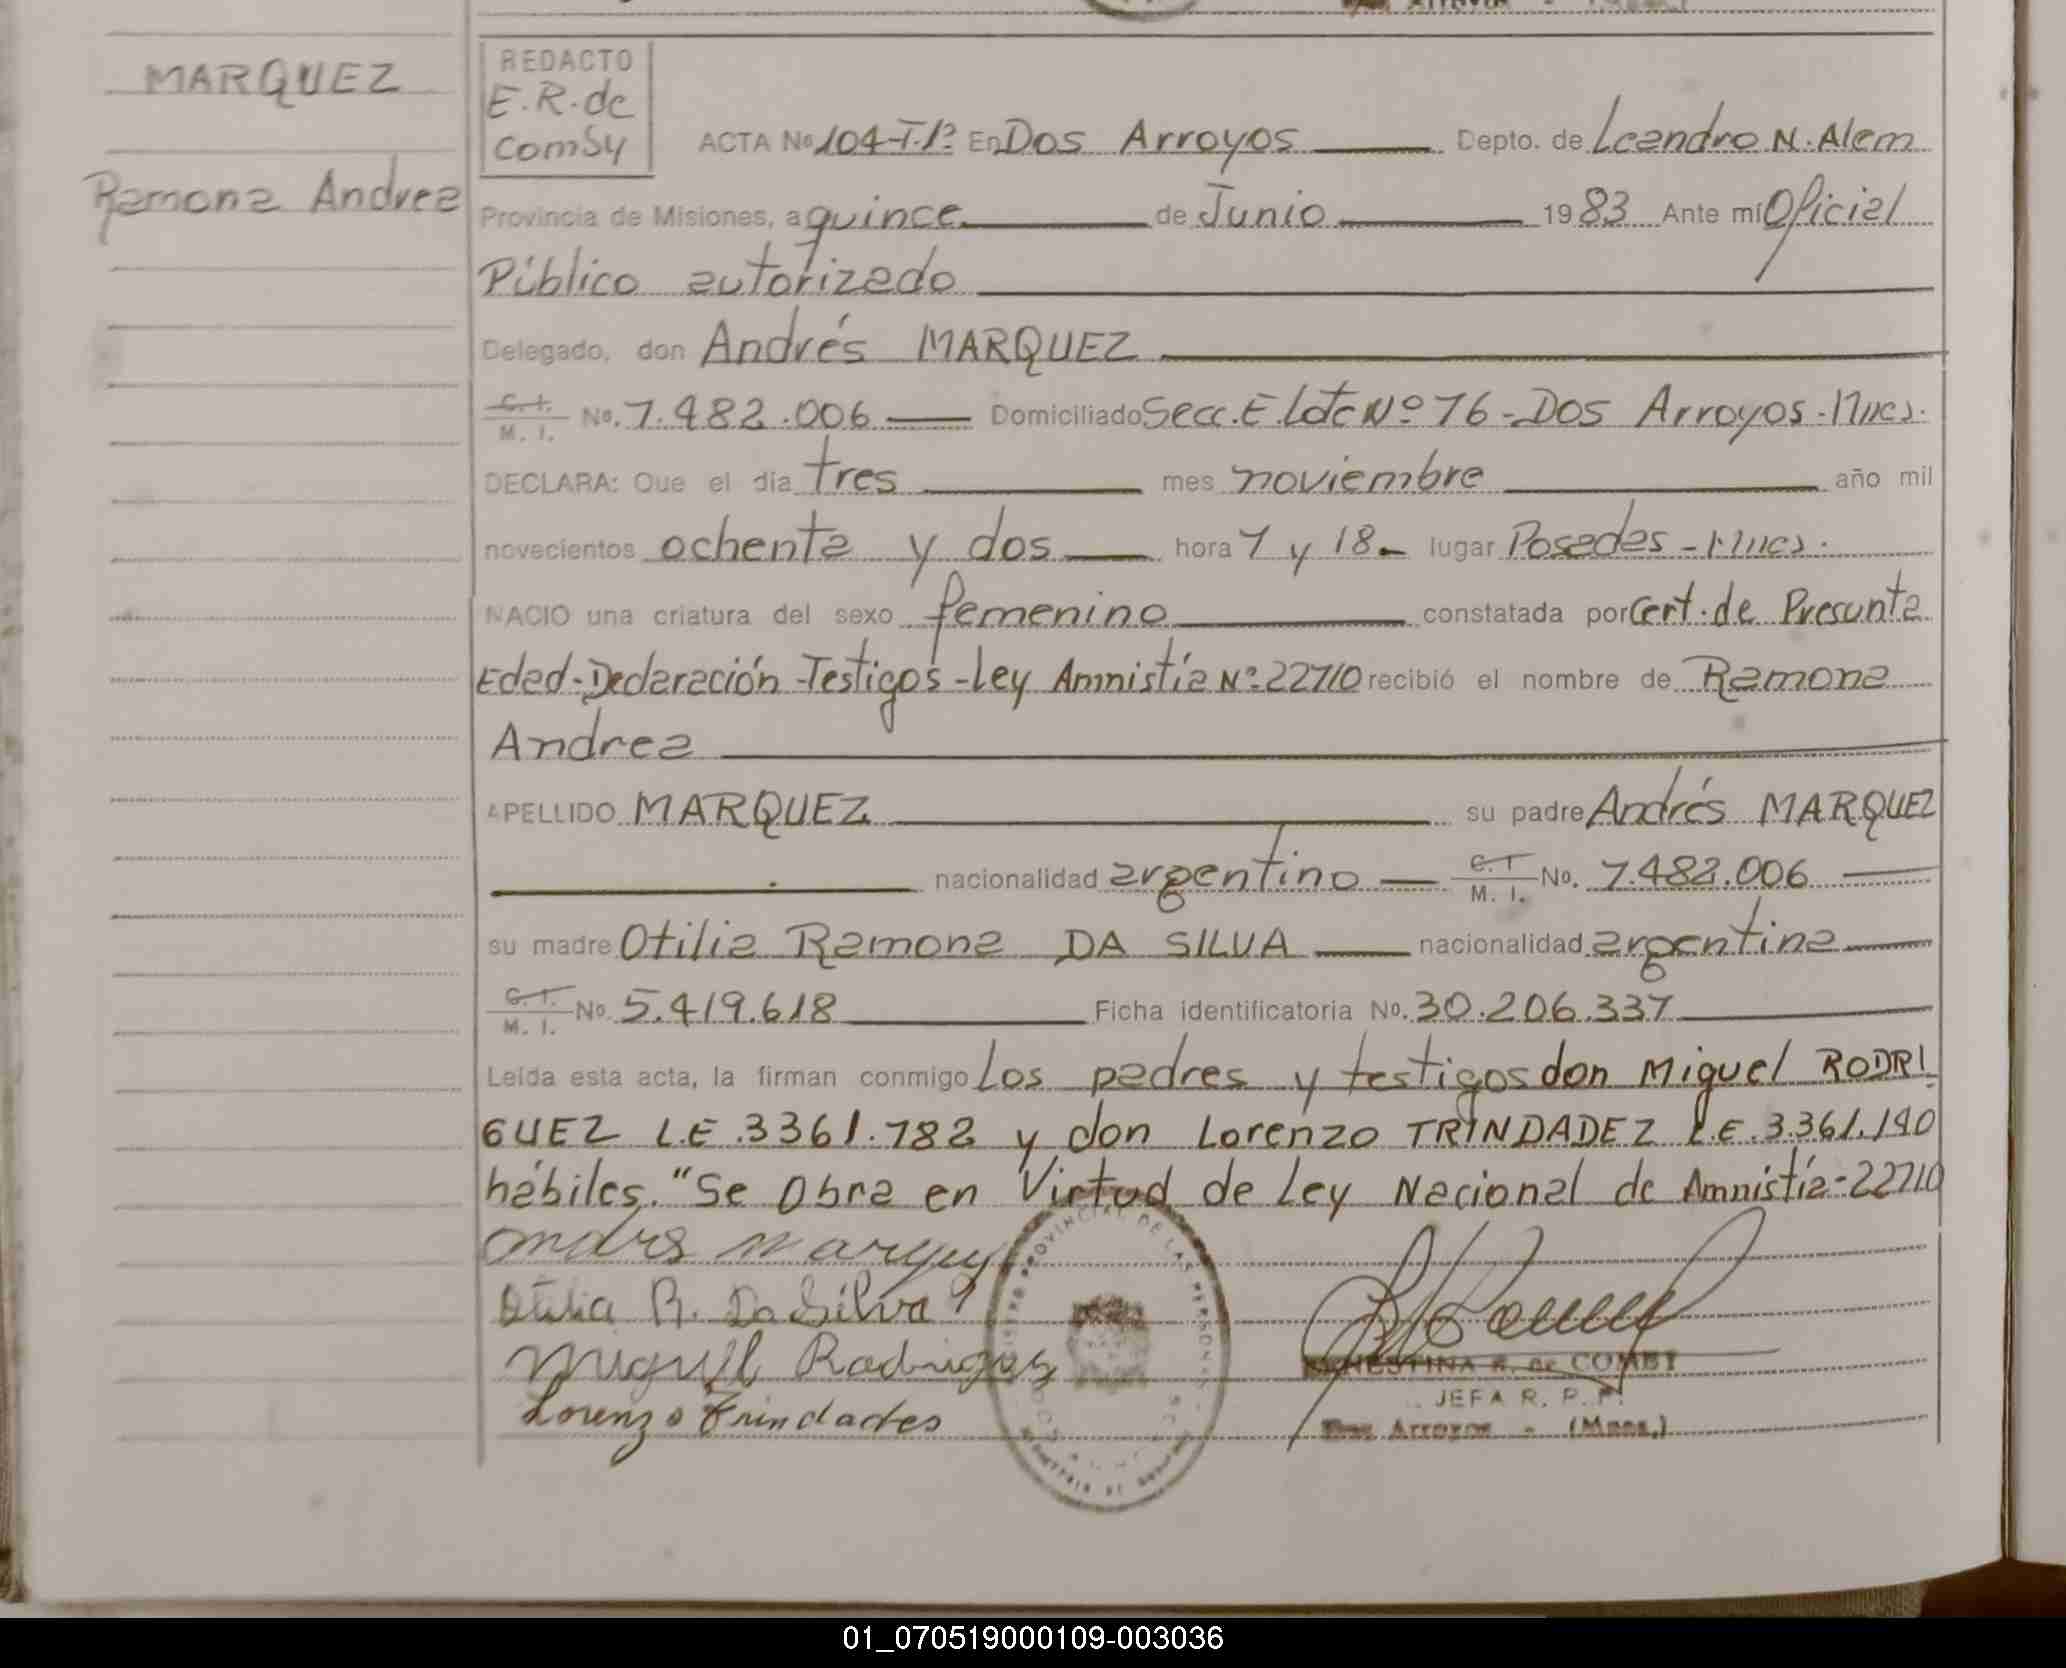 MARQUEZ
Ramona Andrea
REDACTO
E.R.de
ComSy
ACTA No 104-T.1º En Dos Arroyos Depto. de Leandro N. Alem
Provincia de Misiones, a quince de Junio 1983 Ante mí Oficial
Público autorizado
Delegado, don Andrés MARQUEZ
C. I. / M. I. No. 7.482.006 Domiciliado Secc. E Lote Nº 76 - Dos Arroyos - Mnes.
DECLARA: Que el día tres mes noviembre año mil
novecientos ochenta y dos hora 7 y 18 lugar Posadas - Mnes.
NACIO una criatura del sexo femenino constatada por Cert. de Presunta
Edad - Declaración - Testigos - Ley Amnistía Nº 22710 recibió el nombre de Ramona
Andrea
APELLIDO MARQUEZ su padre Andrés MARQUEZ
nacionalidad argentino C. I. / M. I. No. 7.482.006
su madre Otilia Ramona DA SILVA nacionalidad argentina
C. I. / M. I. No. 5.419.618 Ficha identificatoria No. 30.206.337
Leída esta acta, la firman conmigo Los padres y testigos don Miguel RODRI
GUEZ L.E. 3361.782 y don Lorenzo TRINDADEZ L.E. 3.361.190
hábiles. "Se Obra en Virtud de Ley Nacional de Amnistía - 22710
andrs marquez
Otilia R. Da Silva
Miguel Rodrigos
Lorenzo Trindades
REGISTRO PROVINCIAL DE LAS PERSONAS
ERNESTINA R. de COMBY
JEFA R. P. P.
Dos Arroyos - (Mnes.)
01_070519000109-003036